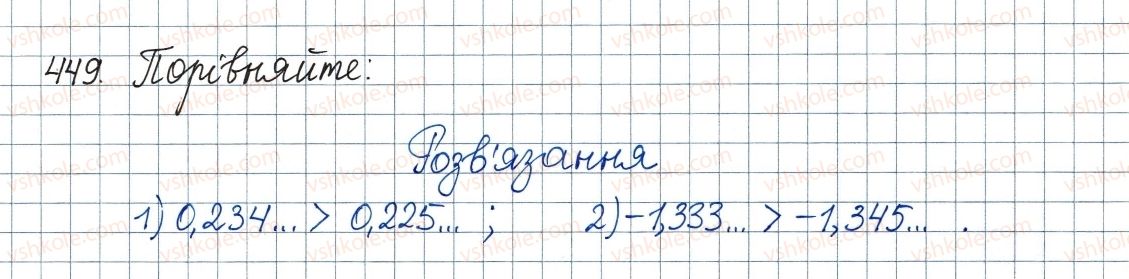 449. Порівняйте:
Розв'язання
1) 0,234... > 0,225... ; 2) -1,333... > -1,345... .